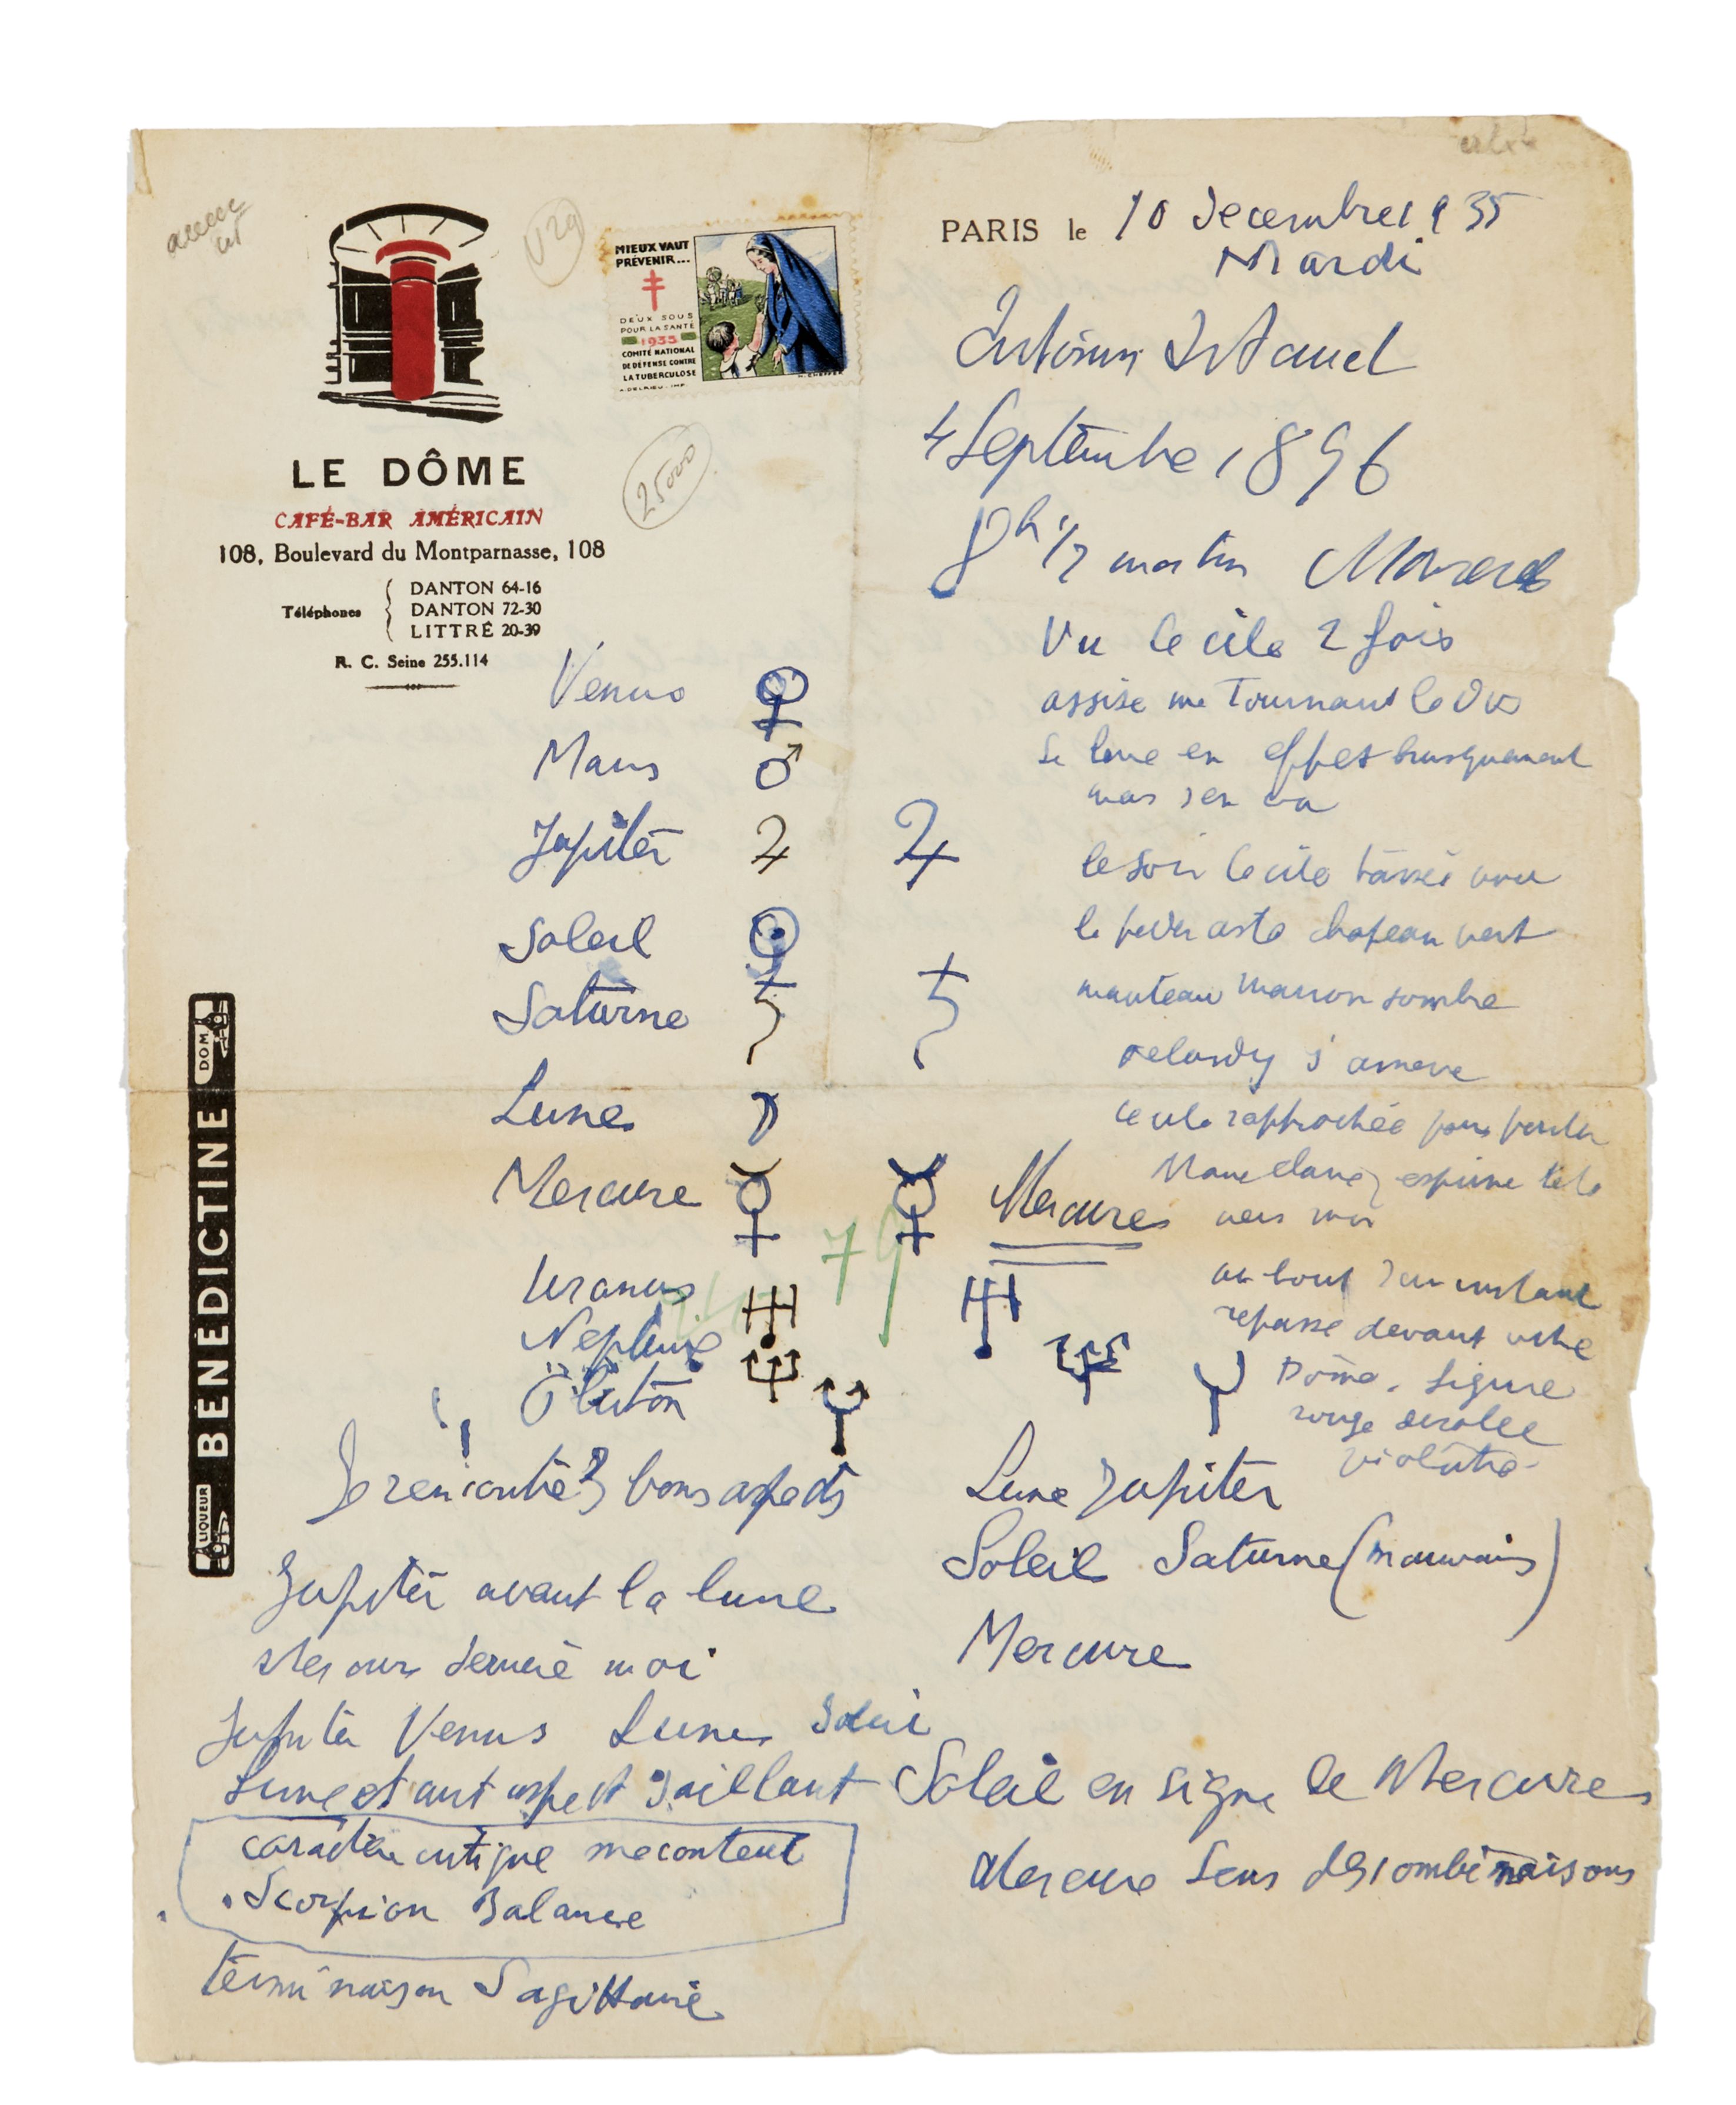 MIEUX VAUT
PRÉVENIR...
DEUX SOUS
POUR LA SANTÉ
1935
COMITÉ NATIONAL
DE DÉFENSE CONTRE
LA TUBERCULOSE
A. DELRIEU. IMP.
V29
25000
LE DÔME
CAFÉ-BAR AMÉRICAIN
108, Boulevard du Montparnasse, 108
Téléphones
DANTON 64-16
DANTON 72-30
LITTRÉ 20-39
R. C. Seine 255.114
PARIS le 10 Decembre 1935
Mardi
4 Septembre 1896
8h 1/2 matin
Vu Cecile 2 fois
assise me Tournant le Dos
se leve en effet brusquement
mais s'en va
le soir Cecile
le chapeau vert
manteau marron sombre
s'amene
Cecile rapprochée pour parler
tete
vers moi
au bout d'un instant
repasse devant votre
Dôme, figure
rouge
Venus ♀
Mars ♂
Jupiter ♃ ♃
Soleil ☉
Saturne ♄ ♄
Lune ☽
Mercure ☿ ☿ Mercure
79
Uranus ♅ ♅
Neptune ♆ ♆
Pluton
Je rencontre 3 bons aspects
Jupiter avant la lune
derriere moi
Jupiter Venus Lune Soleil
Lune etant aspect saillant
caractere critique mecontent
Scorpion Balance
terminaison Sagittaire
Lune Jupiter
Soleil Saturne (mauvais)
Mercure
Soleil en signe de Mercure
Mercure sens des combinaisons
LIQUEUR BÉNÉDICTINE DOM